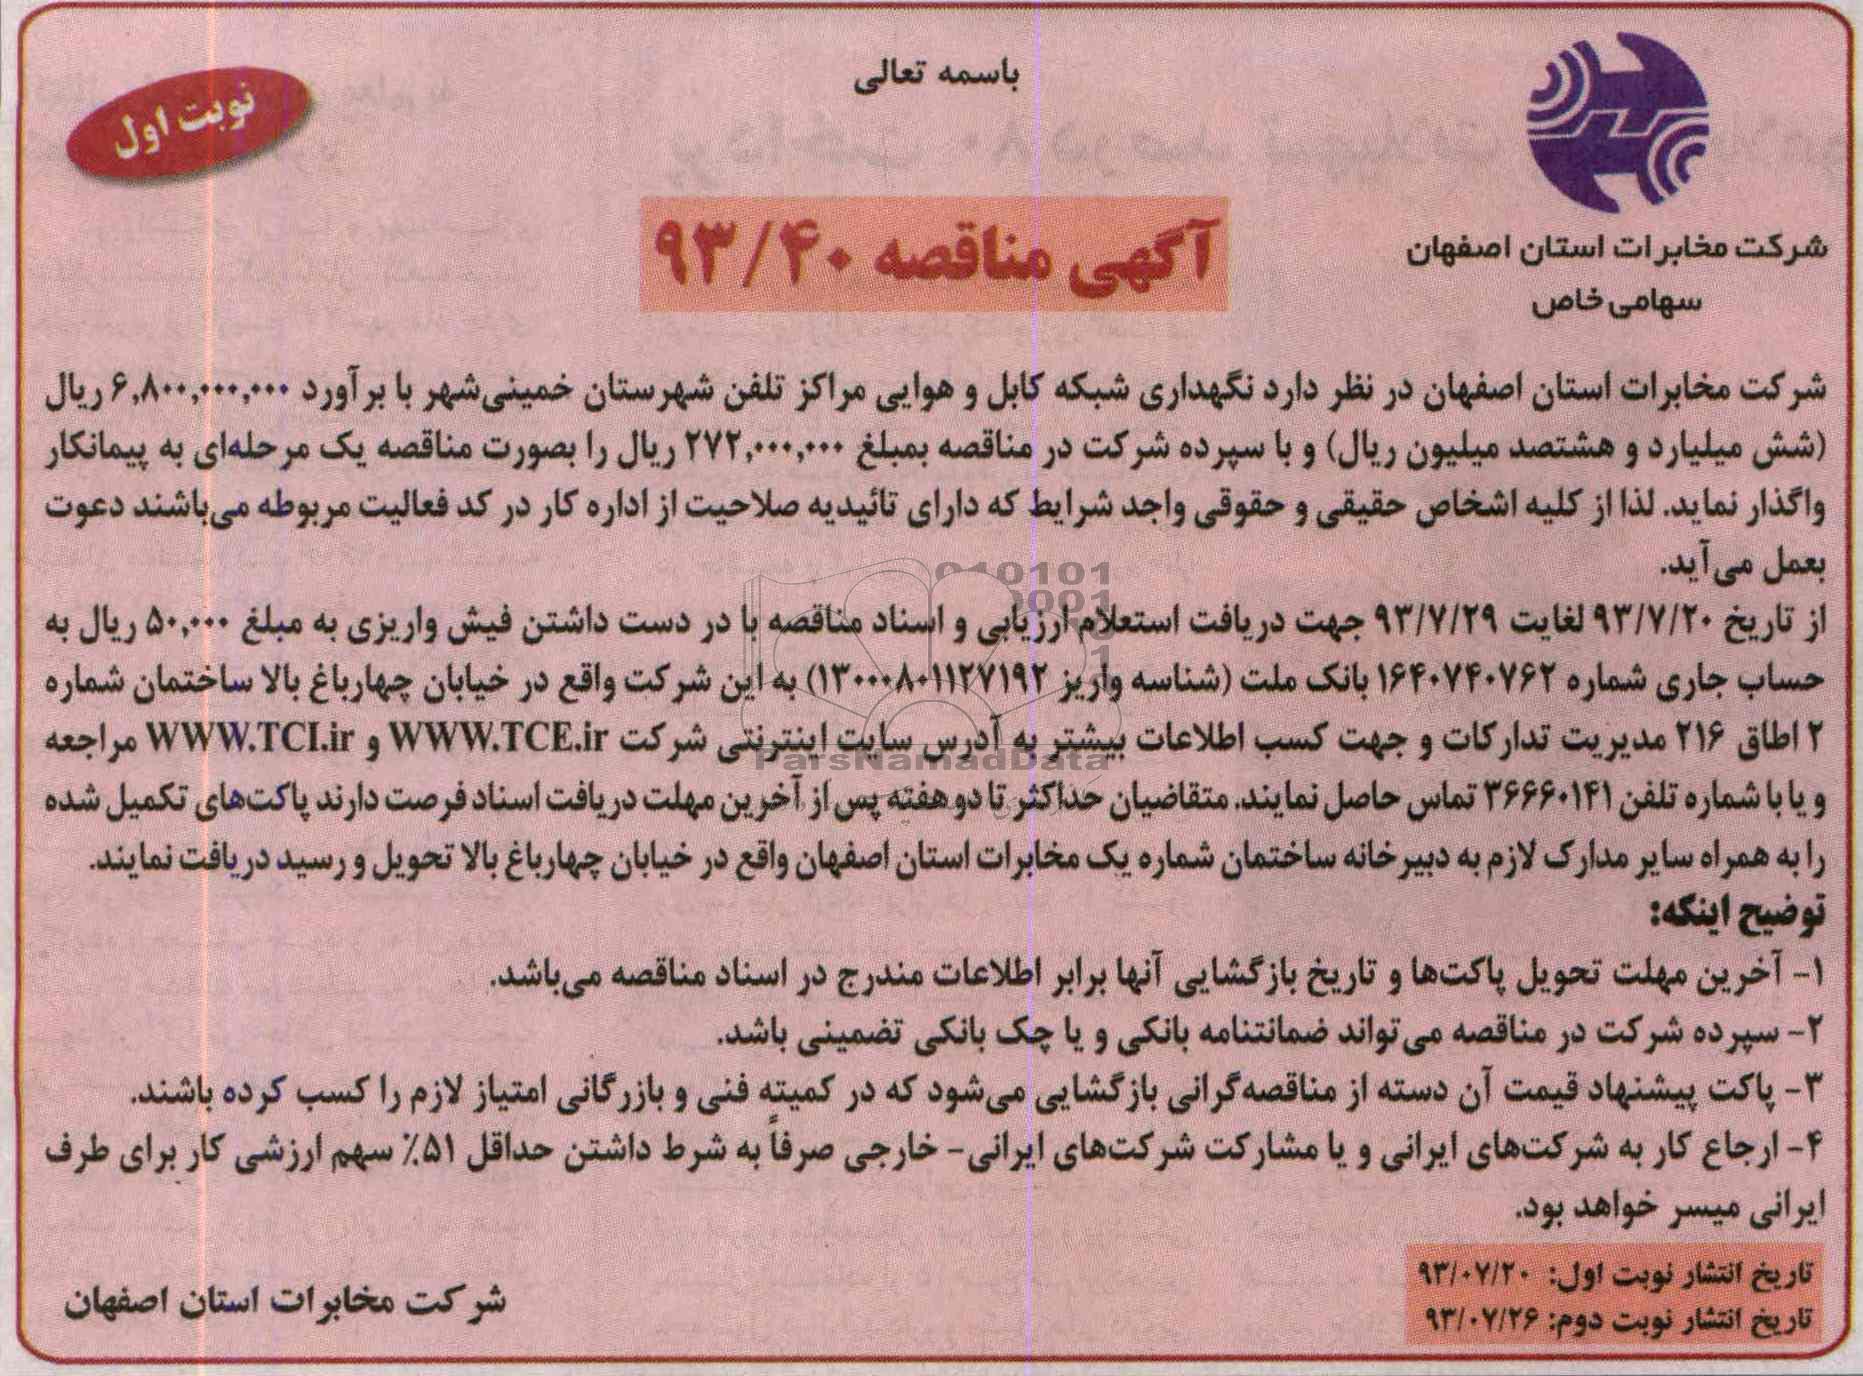 باسمه تعالی
نوبت اول
شرکت مخابرات استان اصفهان
سهامی خاص
آگهی مناقصه ۹۳/۴۰
شرکت مخابرات استان اصفهان در نظر دارد نگهداری شبکه کابل و هوایی مراکز تلفن شهرستان خمینی‌شهر با برآورد ۶,۸۰۰,۰۰۰,۰۰۰ ریال
(شش میلیارد و هشتصد میلیون ریال) و با سپرده شرکت در مناقصه بمبلغ ۲۷۲,۰۰۰,۰۰۰ ریال را بصورت مناقصه یک مرحله‌ای به پیمانکار
واگذار نماید. لذا از کلیه اشخاص حقیقی و حقوقی واجد شرایط که دارای تائیدیه صلاحیت از اداره کار در کد فعالیت مربوطه می‌باشند دعوت
بعمل می‌آید.
از تاریخ ۹۳/۷/۲۰ لغایت ۹۳/۷/۲۹ جهت دریافت استعلام ارزیابی و اسناد مناقصه با در دست داشتن فیش واریزی به مبلغ ۵۰,۰۰۰ ریال به
حساب جاری شماره ۱۶۴۰۷۴۰۷۶۲ بانک ملت (شناسه واریز ۱۳۰۰۰۸۰۱۱۲۷۱۹۲) به این شرکت واقع در خیابان چهارباغ بالا ساختمان شماره
۲ اطاق ۲۱۶ مدیریت تدارکات و جهت کسب اطلاعات بیشتر به آدرس سایت اینترنتی شرکت WWW.TCE.ir و WWW.TCI.ir مراجعه
و یا با شماره تلفن ۳۶۶۶۰۱۴۱ تماس حاصل نمایند. متقاضیان حداکثر تا دو هفته پس از آخرین مهلت دریافت اسناد فرصت دارند پاکت‌های تکمیل شده
را به همراه سایر مدارک لازم به دبیرخانه ساختمان شماره یک مخابرات استان اصفهان واقع در خیابان چهارباغ بالا تحویل و رسید دریافت نمایند.
توضیح اینکه:
۱- آخرین مهلت تحویل پاکت‌ها و تاریخ بازگشایی آنها برابر اطلاعات مندرج در اسناد مناقصه می‌باشد.
۲- سپرده شرکت در مناقصه می‌تواند ضمانتنامه بانکی و یا چک بانکی تضمینی باشد.
۳- پاکت پیشنهاد قیمت آن دسته از مناقصه‌گرانی بازگشایی می‌شود که در کمیته فنی و بازرگانی امتیاز لازم را کسب کرده باشند.
۴- ارجاع کار به شرکت‌های ایرانی و یا مشارکت شرکت‌های ایرانی- خارجی صرفاً به شرط داشتن حداقل ۵۱٪ سهم ارزشی کار برای طرف
ایرانی میسر خواهد بود.
تاریخ انتشار نوبت اول: ۹۳/۰۷/۲۰
تاریخ انتشار نوبت دوم: ۹۳/۰۷/۲۶
شرکت مخابرات استان اصفهان
ParsNamadData